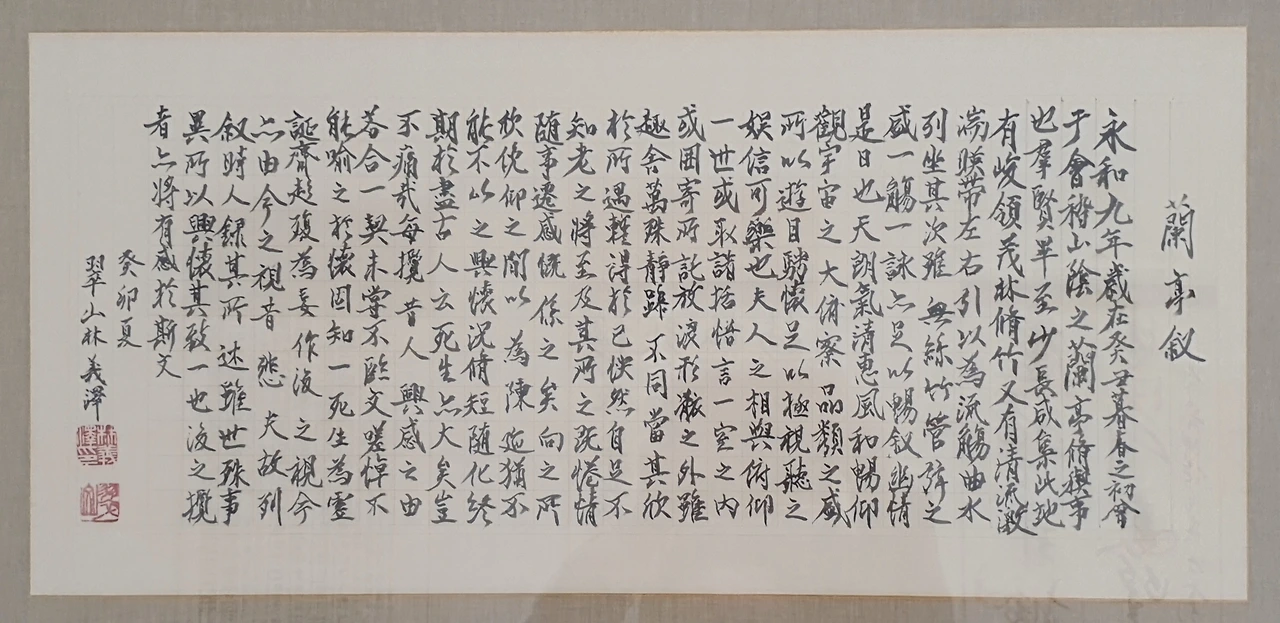 蘭亭叙
永和九年歲在癸丑暮春之初會
于會稽山陰之蘭亭脩禊事
也羣賢畢至少長咸集此地
有峻領茂林脩竹又有清流激
湍暎帶左右引以為流觴曲水
列坐其次雖無絲竹管弦之
盛一觴一詠亦足以暢叙幽情
是日也天朗氣清惠風和暢仰
觀宇宙之大俯察品類之盛
所以遊目騁懷足以極視聽之
娛信可樂也夫人之相與俯仰
一世或取諸括悟言一室之内
或因寄所託放浪形骸之外雖
趣舍萬殊靜躁不同當其欣
於所遇輒得於己怏然自足不
知老之將至及其所之既惓情
隨事遷感慨係之矣向之所
欣俛仰之間以為陳迹猶不
能不以之興懷況脩短隨化終
期於盡古人云死生亦大矣豈
不痛哉每攬昔人興感之由
若合一契未嘗不臨文嗟悼不
能喻之於懷固知一死生為虛
誕齊彭殤為妄作後之視今
亦由今之視昔悲夫故列
叙時人錄其所述雖世殊事
異所以興懷其致一也後之攬
者亦將有感於斯文
癸卯夏
翠山林義澤